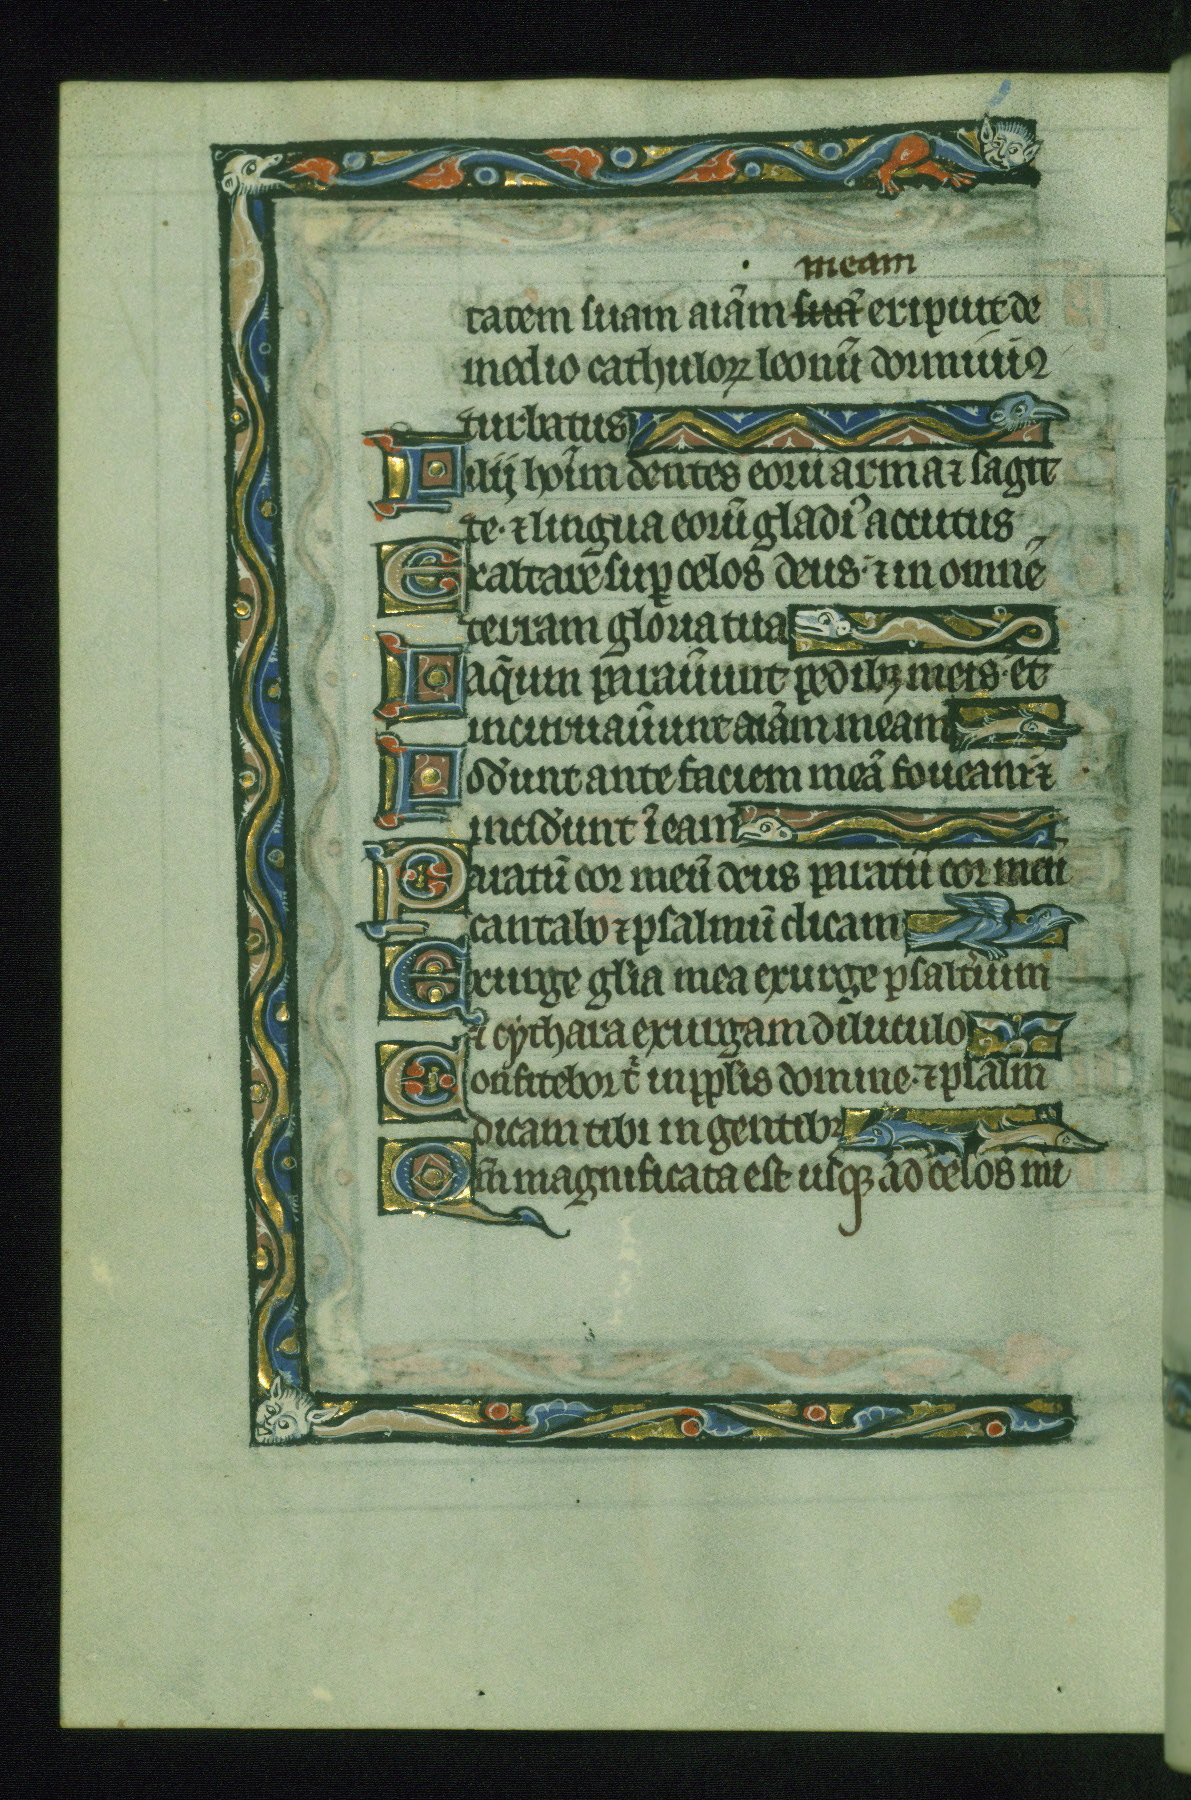 meam
tatem suam aiãm suã eripuit de
medio cathuloꝝ leonũ dormiui ꝯ
turbatus
Filij hoĩm dentes eorũ arma ⁊ sagit
te· ⁊ lingua eorũ gladiꝰ accutus
Exaltare sup celos deus· ⁊ in omnẽ
terram gloria tua
Laq̃um parauũunt pedibꝫ meis· et
incuruauũunt aiãm meam
Foderunt ante faciem meã foueam· ⁊
inciderunt ĩ eam
Paratũ cor meũ deus paratũ cor meũ
cantabo ⁊ psalmũ dicam
Exurge glĩa mea exurge psaltĩum
⁊ cythara exurgam diluculo
Confitebor t̃ in pplĩs domine· ⁊ psalm
dicam tibi in gentibꝫ
Qm̃ magnificata est usqꝫ ad celos mi